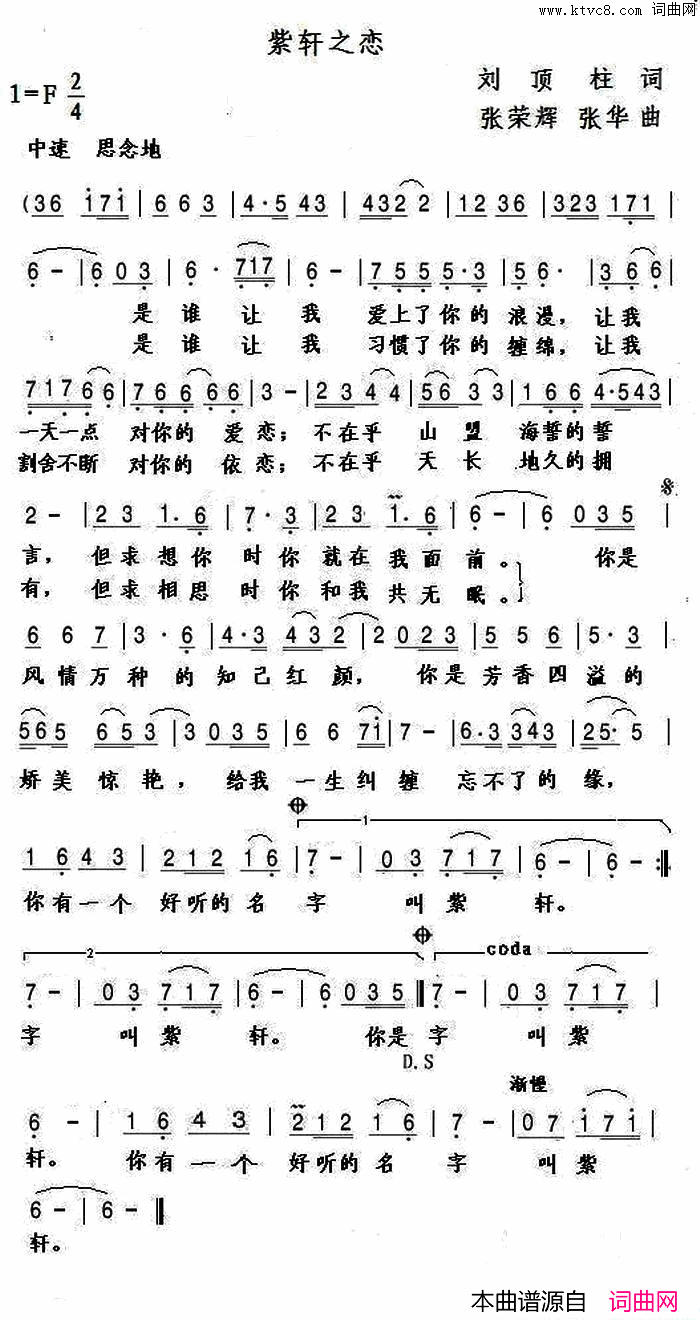 www.ktvc8.com 词曲网
紫轩之恋
刘顶柱 词
1=F 2/4
张荣辉 张华 曲
中速 思念地
(36 171 | 663 | 4·5 43 | 4322 | 1236 | 323 171 |
6 - | 603 | 6· 717 | 6 - | 755 5·3 | 56· | 366 |
是谁让我 爱上了你的浪漫，让我
是谁让我 习惯了你的缠绵，让我
71766 | 7666 66 | 3 - | 2344 | 5633 | 166 4·543 |
一天一点 对你的爱恋；不在乎 山盟 海誓的誓
割舍不断 对你的依恋；不在乎 天长 地久的拥
2 - | 23 1·6 | 7·3 | 23 1·6 | 6 - | 6035 |
言，但求想你时你就在我面前。 你是
有，但求相思时你和我共无眠。
667 | 3·6 | 4·3 432 | 2023 | 556 | 5·3 |
风情万种的知己红颜， 你是芳香四溢的
565 653 | 3035 | 66 71 | 7 - | 6·3 343 | 25· 5 |
娇美惊艳，给我一生纠缠 忘不了的缘，
1
1643 | 212 16 | 7 - | 03 717 | 6 - | 6 - :||
你有一个好听的名字 叫紫轩。
2 coda
7 - | 03 717 | 6 - | 6035 || 7 - | 03 717 |
字 叫紫轩。 你是字 叫紫
D.S
渐慢
6 - | 1643 | 212 16 | 7 - | 07 171 |
轩。 你有一个 好听的名字 叫紫
6 - | 6 - ||
轩。
本曲谱源自 词曲网